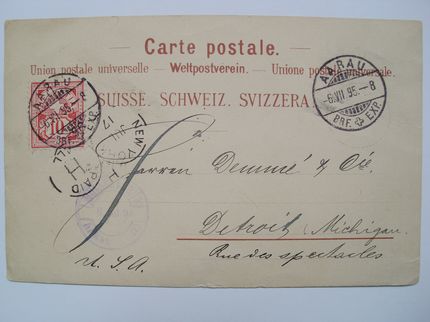 Carte postale.
Union postale universelle. — Weltpostverein. — Unione postale universale.
SUISSE. SCHWEIZ. SVIZZERA.
AARAU
-6.VII.95.-8
BRF. EXP.
AARAU
EXP.
10
NEW YORK
PAID
H
ALL
17
Herren Demmé & Cie.
Detroit, Michigan.
Rue des spectacles
U.S.A.